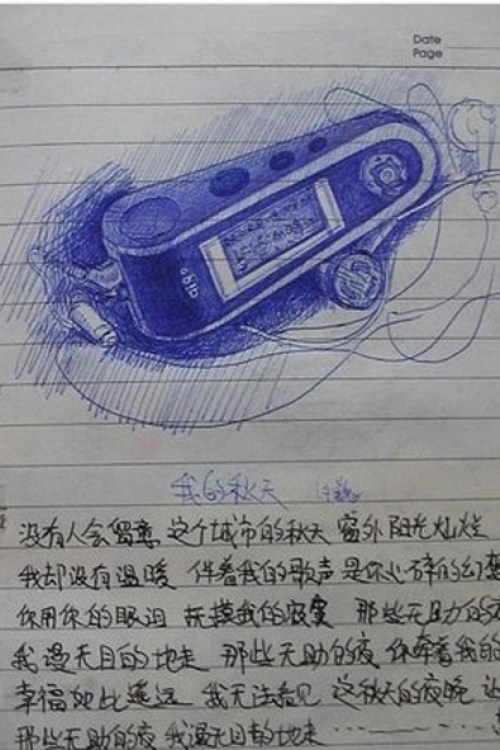 Date
Page
我的秋天 许巍
没有人会留意 这个城市的秋天 窗外阳光灿烂
我却没有温暖 伴着我的歌声 是你心碎的幻想
你用你的眼泪 抚摸我的寂寞 那些无助的夜
我漫无目的地走 那些无助的夜 你牵着我的
幸福如此遥远 我无法看见 这秋天的夜晚 让
那些无助的夜 我漫无目的地走